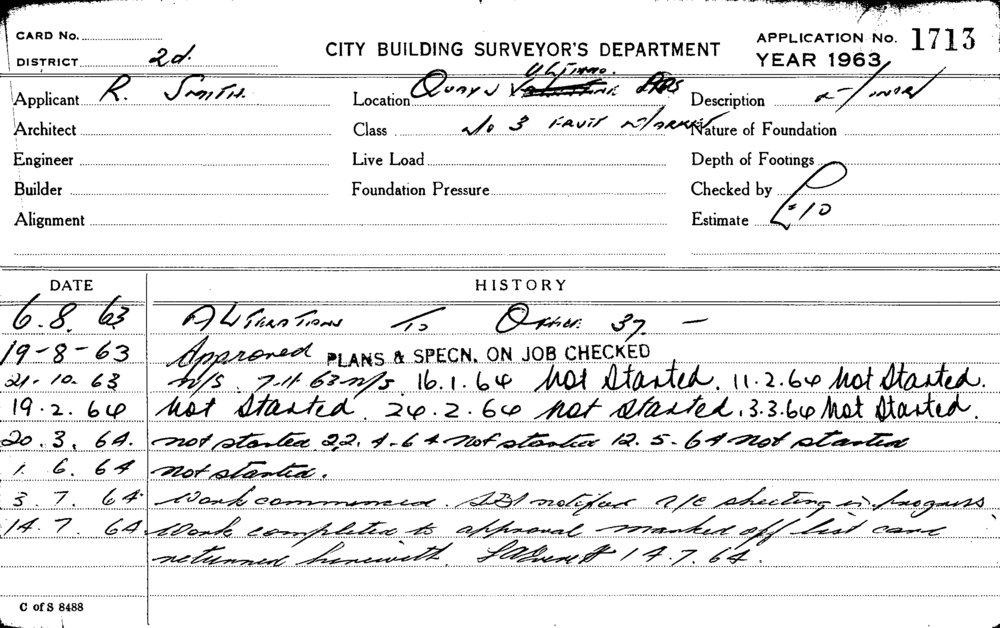 CARD No.
DISTRICT 2d.
CITY BUILDING SURVEYOR'S DEPARTMENT
APPLICATION No. 1713
YEAR 1963
Applicant R. SMITH.
Location QUAY & ULTIMO. RDS
Description
Architect
Class No 3 FRUIT MARKET
Nature of Foundation
Engineer
Live Load
Depth of Footings
Builder
Foundation Pressure
Checked by
Alignment
Estimate £10
DATE HISTORY
6.8.63 ALTERATIONS TO OFFICE 37. —
19-8-63 Approved PLANS & SPECN. ON JOB CHECKED
21-10.63 N/S. 7-11-63 N/S. 16.1.64 Not Started. 11.2.64 Not Started.
19.2.64 Not Started. 24.2.64 Not Started. 3.3.64 Not Started.
20.3.64. not started 22.4.64 Not started 12.5.64 not started
1.6.64 not started.
3.7.64 Work commenced. notified sheeting in progress.
14.7.64 Work completed to approval marked off list card
returned herewith. 14.7.64.
C of S 8488